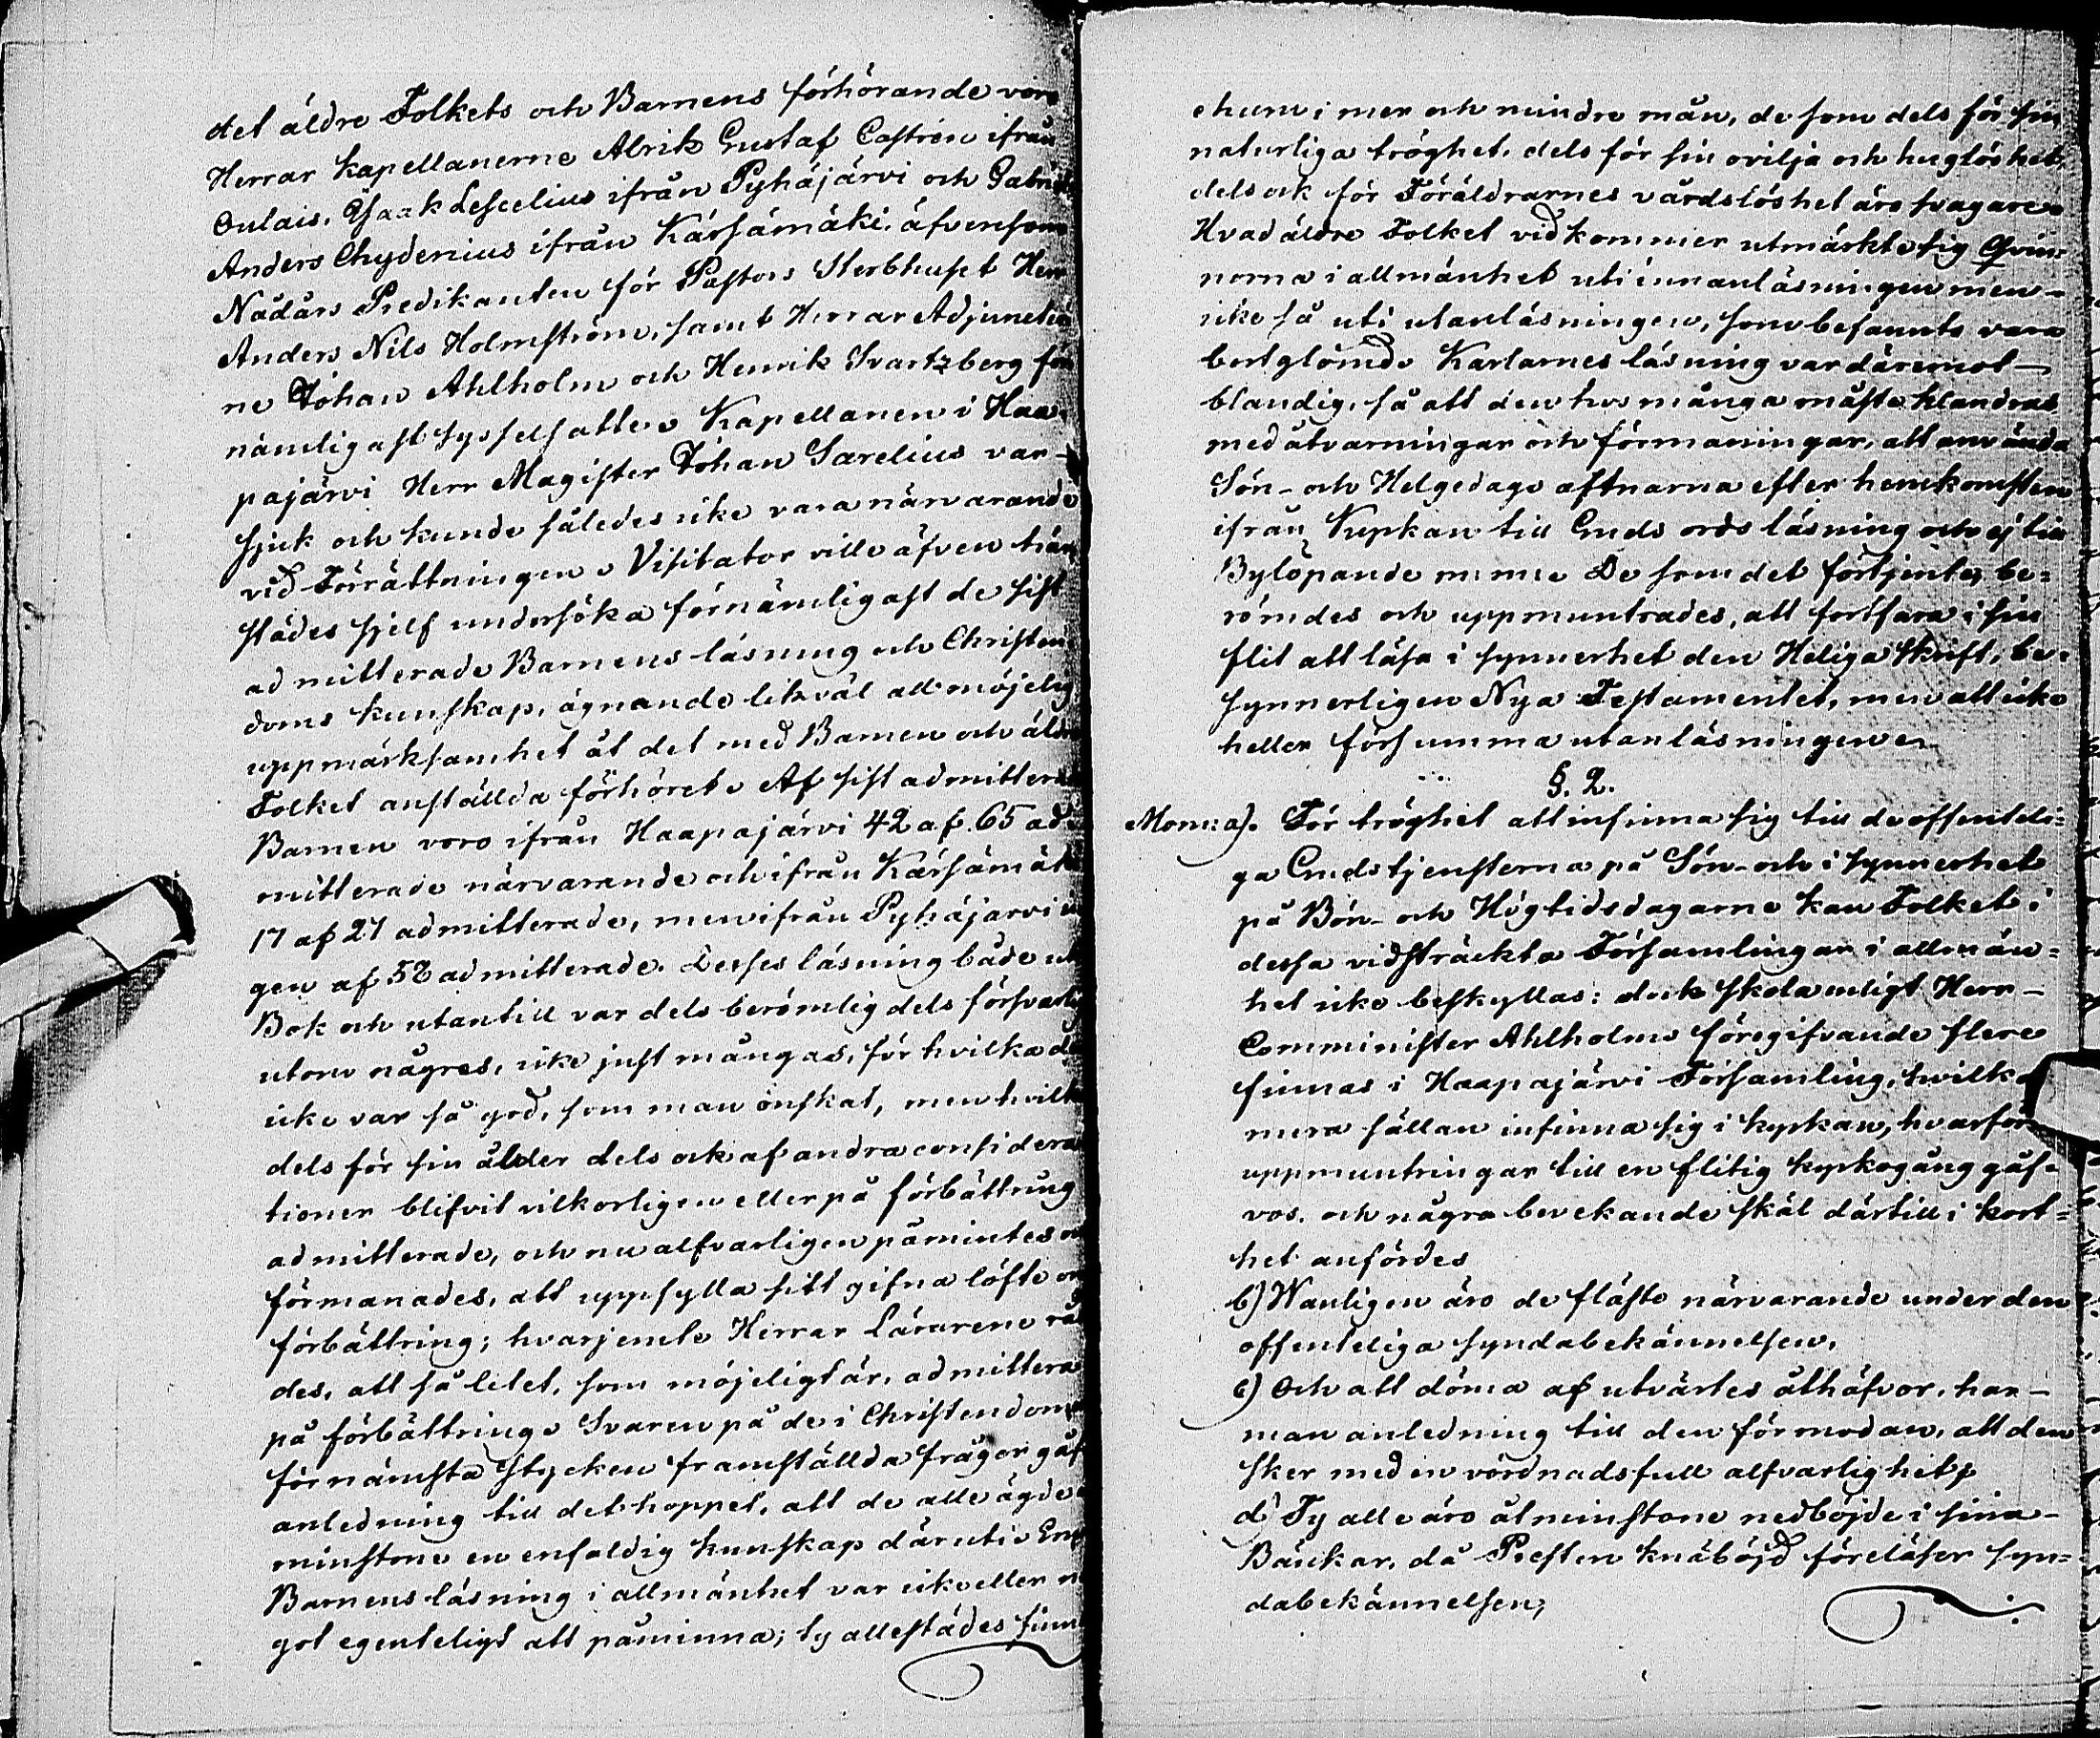 det äldre Folkets och Barnens förhörande voro
Herrar Kapellanerne Alrik Gustaf Castrén ifrån
Oulais, Isaak Lescelius ifrån Pyhäjärvi och Gabriel
Anders Chydenius ifrån Kärsämäki, äfvensom
Nådårs Predikanten för Pastors Sterbhuset Herr
Anders Nils Holmström, samt Herrar Adjuncter
ne Johan Ahlholm och Henrik Svartzberg för
nämligast sysselsatte. Kapellanen i Haa-
pajärvi Herr Magister Johan Sarelius var-
sjuk och kunde således icke vara närvarande
vid Förrättningen. Visitator ville äfven här-
städes sjelf undersöka förnämligast de sist
admitterade Barnens läsning och Christen
doms kunskap, ägnande likväl all möjelig
uppmärksamhet åt det med Barnen och äldre
Folket anställda förhöret. Af sist admitterade
Barnen voro ifrån Haapajärvi 42 af 65 ad-
mitterade närvarande och ifrån Kärsämäki
17 af 27 admitterade, men ifrån Pyhäjarvi in
gen af 52 admitterade. Desses läsning både uti
Bok och utantill var dels berömlig dels försvarlig
utom någres, icke just mångas, för hvilka de
icke var så god, som man önskat, men hvilka
dels för sin ålder dels ock af andra considera
tioner blifvit vilkorligen eller på förbättring
admitterade, och nu alfvarligen påmintes och
förmanades, att uppfylla sitt gifna löfte om
förbättring; hvarjemte Herrar Lärarene råd
des, att så litet, som möjeligt är, admittera
på förbättring. Svaren på de i Christendoms
förnämsta stycken framställda frågor gåf
anledning till det hoppet, att de alle ägde
minstone en enfaldig kunskap därutie
Barnens läsning i allmänhet var icke eller nå
got egenteligt att påminna; ty allestädes finnas
ehuru i mer och mindre mån, de som dels för sin
naturliga tröghet, dels för sin ovilja och huglöshet,
dels ock för Föräldrarnes vårdslöshet äro svagare.
Hvad äldre Folket vidkommer utmärkte sig Qvin-
norna i allmänhet uti innanläsningen men-
icke så uti utanläsningen, som befannts vara
bortglömd. Karlarnes läsning var däremot-
blandig, så att den hos många måste klandras
med åtvarningar och förmaningar, att använda
Sön- och Helgedags aftnarna efter hemkomsten
ifrån Kyrkan till Guds ords läsning och ej till
Bylöpande mm De som det förtjente, be-
römdes och uppmuntrades, att fortfara i sin
flit att läsa i synnerhet den Heliga Skrift, be-
synnerligen Nya Testamentet, men att icke
heller försumma utanläsningen
§. 2.
Mom: a). För tröghet att infinna sig till de offenteli-
ga Gudstjensterna på Sön- och i synnerhet
på Bön- och Högtidsdagarne kan Folket i
dessa vidsträckta Församlingar i allmän-
het icke beskyllas: dock skola enligt Herr-
Comminister Ahlholms föregifvande flere
finnas i Haapajärvi Församling, hvilka
mera sällan infinna sig i kyrkan, hvarför
uppmuntringar till en flitig kyrkogång gåf-
vos, och några bevekande skäl därtill i kort-
het anfördes
b) Wanligen äro de fläste närvarande under den
offenteliga syndabekännelsen.
c) Och att döma af utvärtes åthäfvor, har-
man anledning till den förmodan, att den
sker med en vördnadsfull alfvarlighet
d) Ty alle äro åtminstone nedböjde i sina-
Bänkar, då Presten knäböjd föreläser syn-
dabekännelsen;